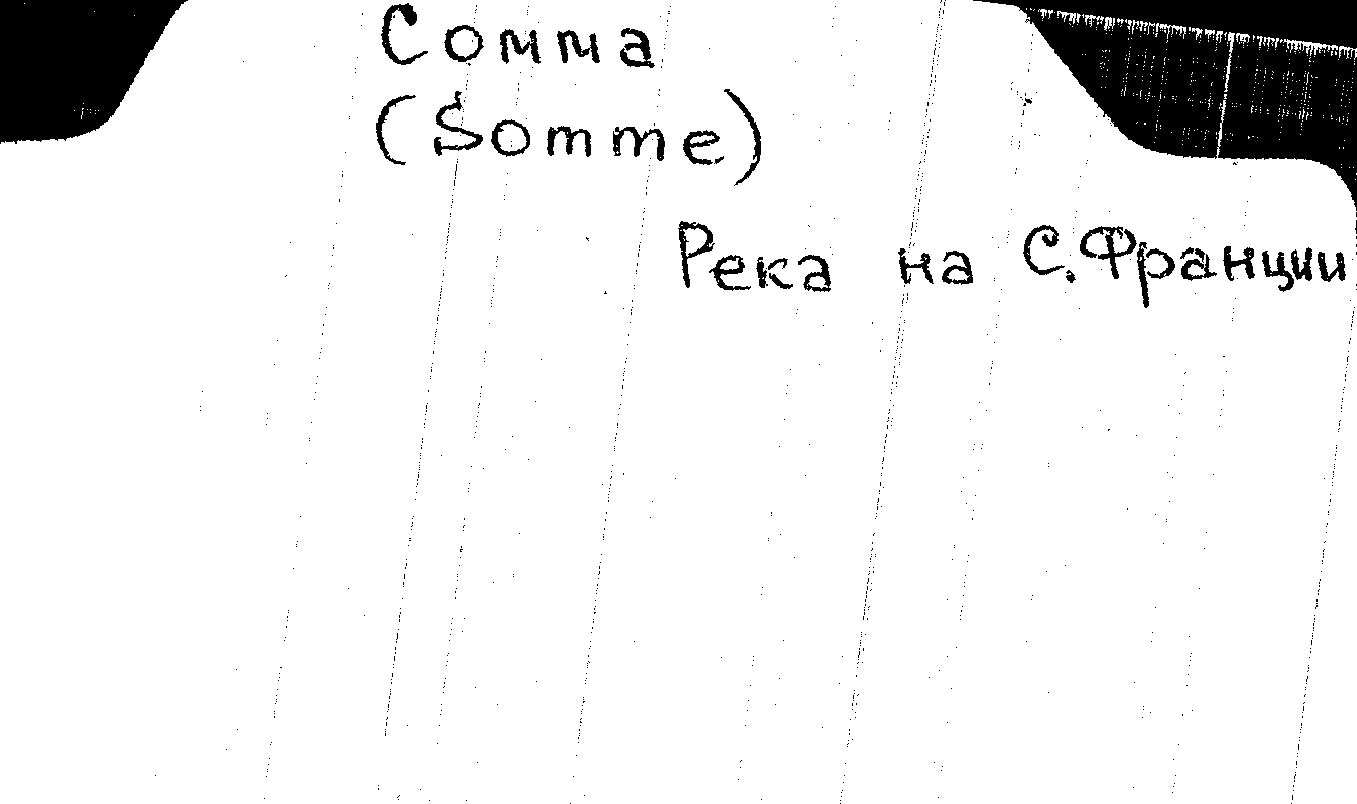 Сомма
(Somme)
Река на С. Франции